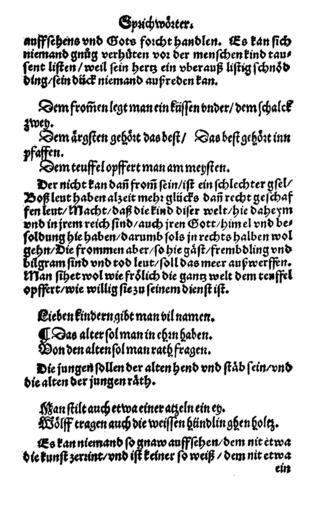 Sprichwörter.
auffsehens vnd Gots forcht handlen. Es kan sich
niemand gnůg verhüten vor der menschen kind tau-
sent listen / weil sein hertz ein vberauß listig schnöd
ding / sein dück niemand außreden kan.
Dem from̃en legt man ein küssen vnder / dem schalck
zwey.
Dem ärgsten gehört das best / Das best gehört inn
pfaffen.
Dem teuffel opffert man am meysten.
Der nicht kan dañ from̃ sein / ist ein schlechter gsel /
Boß leut haben alzeit mehr glücks dañ recht geschaf
fen leut / Macht / daß die kind diser welt / hie daheym
vnd in jrem reich sind / auch jren Gott / him̃el vnd be-
soldung hie haben / darumb sols in rechts halben wol
gehn / Die frommen aber / so hie gäst / frembdling vnd
bilgram sind vnd tod leut / soll das meer außwerffen.
Man sihet wol wie frölich die gantz welt dem teuffel
opffert / wie willig sie zu seinem dienst ist.
Lieben kindern gibt man vil namen.
¶ Das alter sol man in ehrn haben.
Von den alten sol man rath fragen.
Die jungen sollen der alten hend vnd stäb sein / vnd
die alten der jungen räth.
Man stilt auch etwa einer atzeln ein ey.
Wölff tragen auch die weissen hündlin ghen holtz.
Es kan niemand so gnaw auffsehen / dem nit etwa
die kunst zerrint / vnd ist keiner so weiß / dem nit etwa
ein